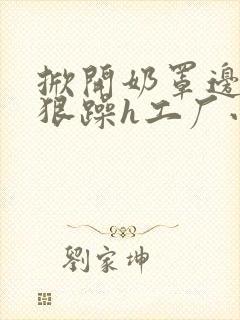 掀開奶罩邊
狠躁h工厂
劉家坤